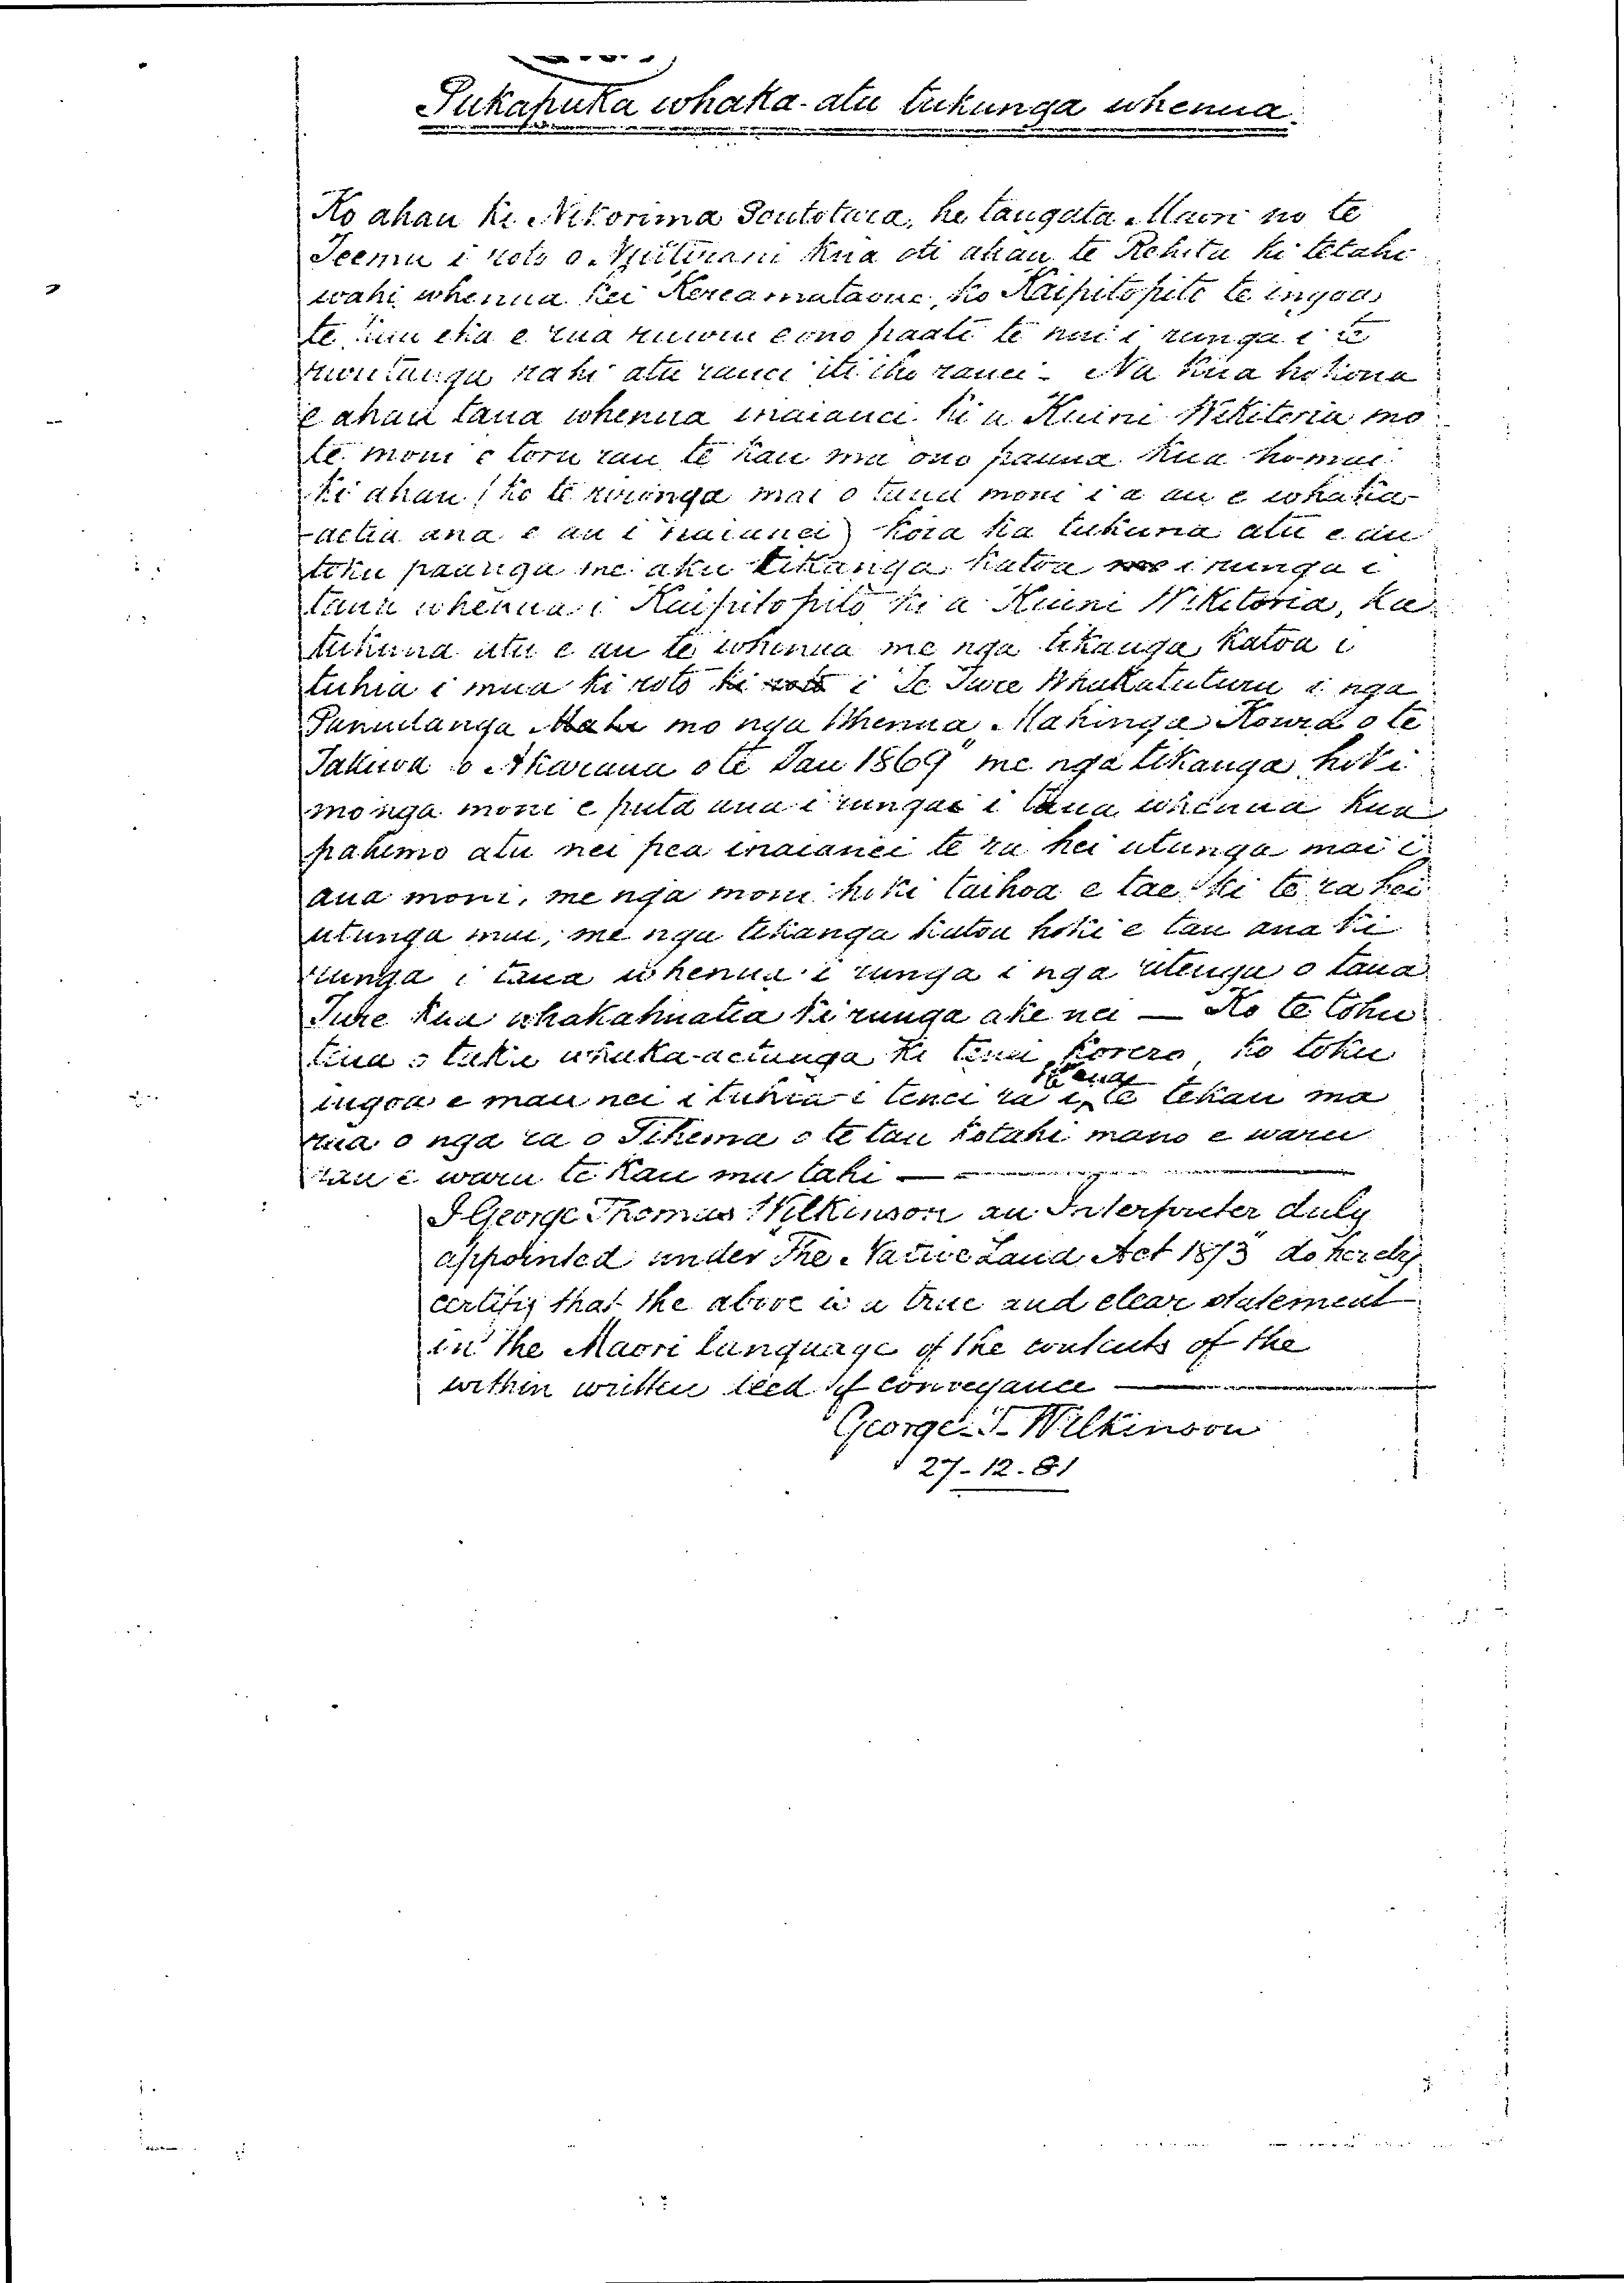 Pukapuka whaka-atu tukunga whenua.
Ko ahau ko Nikorima Poutotara, he tangata Maori no te
Teemu i roto o Niu Tireni kua oti ahau te Rehita ki tetahi
wahi whenua kei Kereamataone, ko Kaipitopito te ingoa
te nui eka e rua ruuri e ono paati te nui i runga i te
ruritanga rahi atu ranei iti iho ranei - Na kua hokona
e ahau taua whenua inaianei ki a Kuini Wikitoria mo
te moni e toru rau te kau ma ono pauna kua homai
ki ahau (ko te riringa mai o taua moni i a au e whaka-
-aetia ana e au i naianei) koia ka tukuna atu e au
toku paanga me aku tikanga katoa i runga i
taua whenua i Kaipitopito ki a Kuini Wikitoria, ka
tukuna atu e au te whenua me nga tikanga katoa i
tuhia i mua ki roto ki roto i Te Ture Whakatuturu i nga
Pukapuka mo nga Whenua Mahinga Koura o te
Takiwa o Akarana o te Tau 1869" me nga tikanga hoki
mo nga moni e puta ana i runga i taua whenua kua
pahemo atu nei pea inaianei te ra hei utunga mai i
aua moni, me nga moni hoki taihoa e tae ki te ra hei
utunga mai, me nga tikanga katoa hoki e tau ana ki
runga i taua whenua i runga i nga ritenga o taua
Ture kua whakahuatia ki runga ake nei — Ko te tohu
tena o taku whaka-aetanga ki tenei korero, ko toku
ingoa e mau nei i tuhia i tenei ra i te tekau ma
rua o nga ra o Tihema o te tau kotahi mano e waru
rau e waru te kau ma tahi —
I George Thomas Wilkinson an Interpreter duly
appointed under "The Native Land Act 1873" do hereby
certify that the above is a true and clear statement
in the Maori language of the contents of the
within written deed of conveyance —
George T. Wilkinson
27-12-81